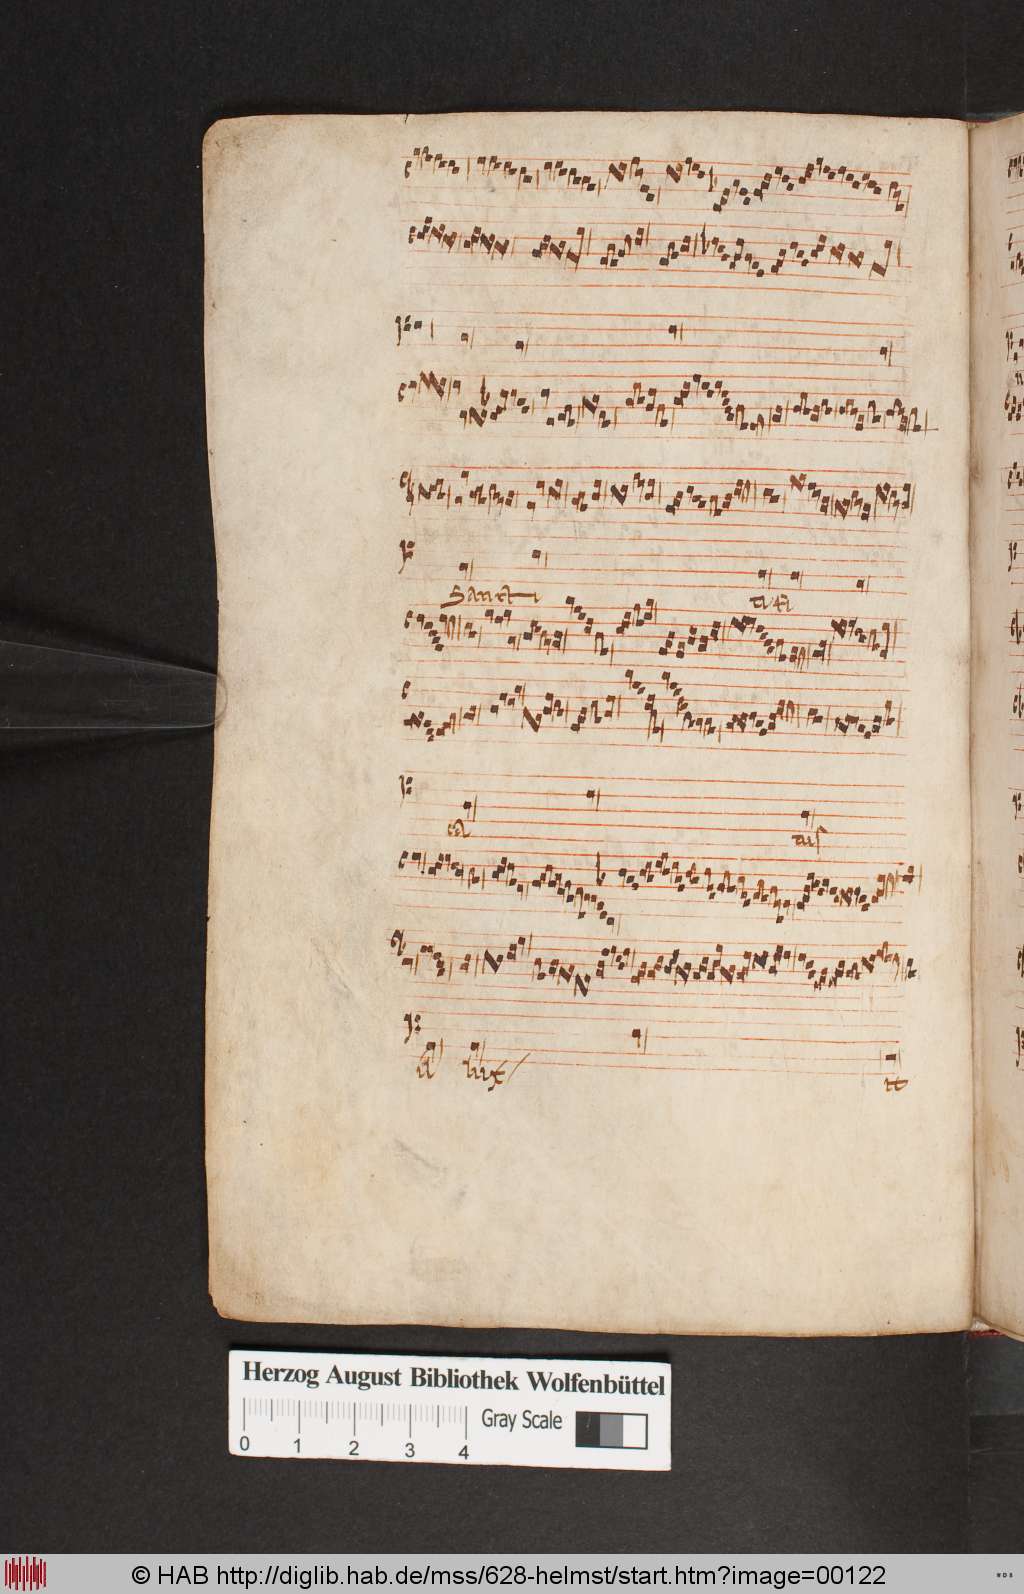 Sancti ti fi
ca tus
A lux tt
Herzog August Bibliothek Wolfenbüttel
Gray Scale
0 1 2 3 4
© HAB http://diglib.hab.de/mss/628-helmst/start.htm?image=00122